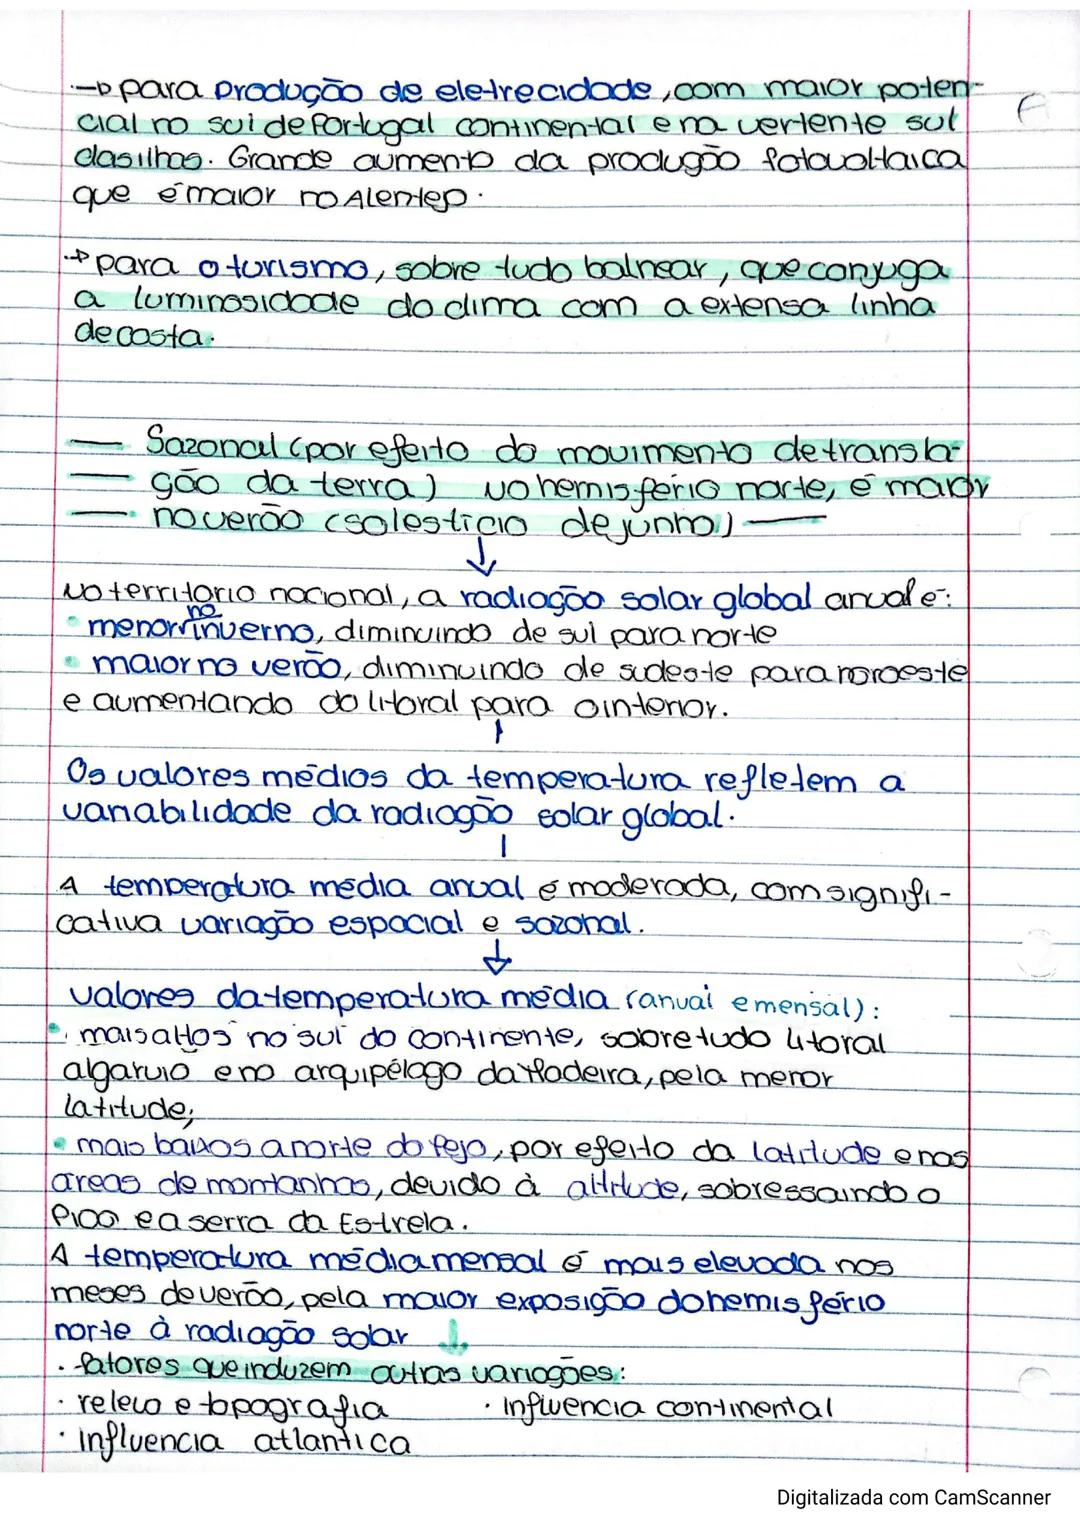 → para produção de eletrecidade, com maior poten-
cial no sul de Portugal continental e na vertente sul
das ilhas. Grande aumento da produção fotovoltaica
que é maior no Alentejo.
→ para o turismo, sobre tudo balnear, que conjuga
a luminosidade do clima com a extensa linha
de costa.
Sazonal (por efeito do movimento de transla-
ção da terra) No hemisfério norte, é maior
no verão (solestício de junho)
↓
No territorio nacional, a radiação solar global anual é:
no
• menor inverno, diminuindo de sul para norte
• maior no verão, diminuindo de sudeste para noroeste
e aumentando do litoral para o interior.
Os valores médios da temperatura refletem a
variabilidade da radiação solar global.
A temperatura média anual é moderada, com signifi-
cativa variação espacial e sazonal.
↓
Valores da temperatura média (anual e mensal):
• mais altos no sul do continente, sobretudo litoral
algarvio e no arquipélago da Madeira, pela menor
latitude;
• mais baixos a norte do Tejo, por efeito da latitude e nas
áreas de montanhas, devido à altitude, sobressaindo o
Pico e a serra da Estrela.
A temperatura média mensal é mais elevada nos
meses de verão, pela maior exposição do hemisfério
norte à radiação solar ↓
. fatores que induzem outras variações:
· relevo e topografia · Influencia continental
· Influencia atlantica
Digitalizada com CamScanner